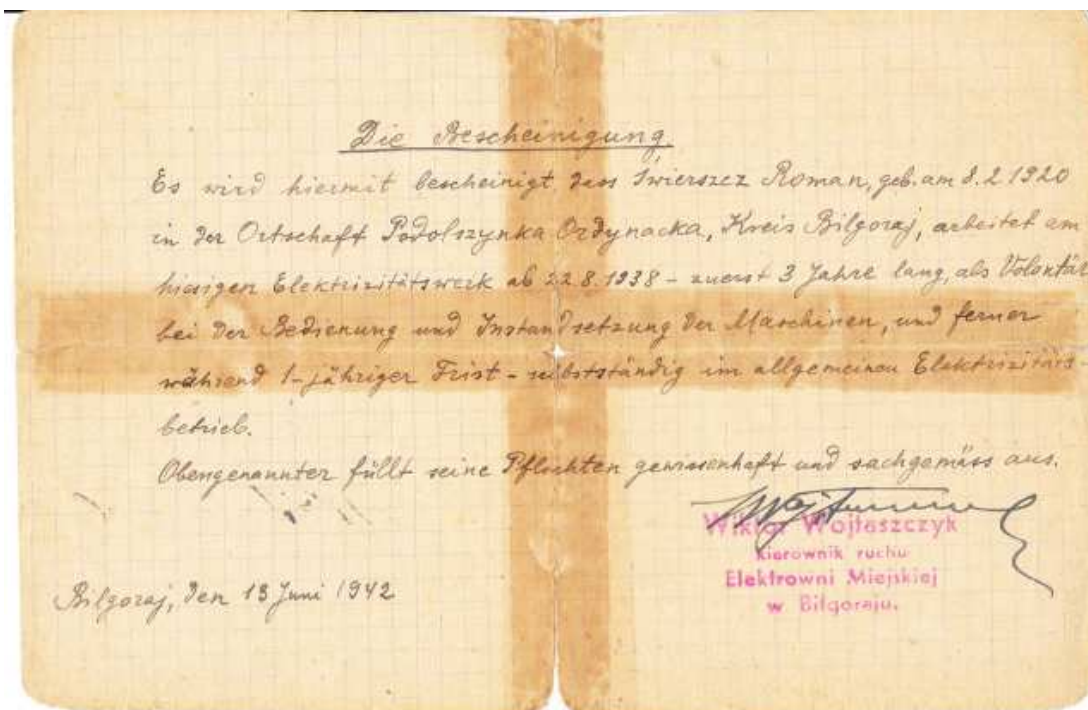 Die Bescheinigung.
Es wird hiermit bescheinigt dass Swierszcz Roman, geb. am 8.2.1920
in der Ortschaft Podolszynka Ordynacka, Kreis Bilgoraj, arbeitet am
hiesigen Elektrizitätswerk ab 22.8.1938 - zuerst 3 Jahre lang, als Volontär
bei der Bedienung und Instandsetzung der Maschinen, und ferner
während 1-jähriger Frist - selbstständig im allgemeinen Elektrizitäts-
betrieb.
Obengenannter füllt seine Pflichten gewissenhaft und sachgemäss aus.
Wiktor Wojtaszczyk
kierownik ruchu
Elektrowni Miejskiej
w Biłgoraju.
Bilgoraj, den 13 Juni 1942